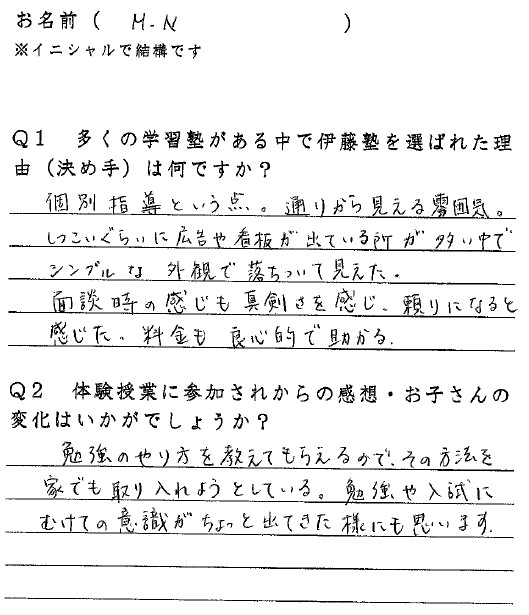 お名前（ M.N ）
※イニシャルで結構です
Q1　多くの学習塾がある中で伊藤塾を選ばれた理
由（決め手）は何ですか？
個別指導という点。通りから見える雰囲気。
しつこいぐらいに広告や看板が出ている所が多い中で
シンプルな外観で落ちついて見えた。
面談時の感じも真剣さを感じ、頼りになると
感じた。料金も良心的で助かる.
Q2　体験授業に参加されからの感想・お子さんの
変化はいかがでしょうか？
勉強のやり方を教えてもらえるので、その方法を
家でも取り入れようとしている。勉強や入試に
むけての意識がちょっと出てきた様にも思います.